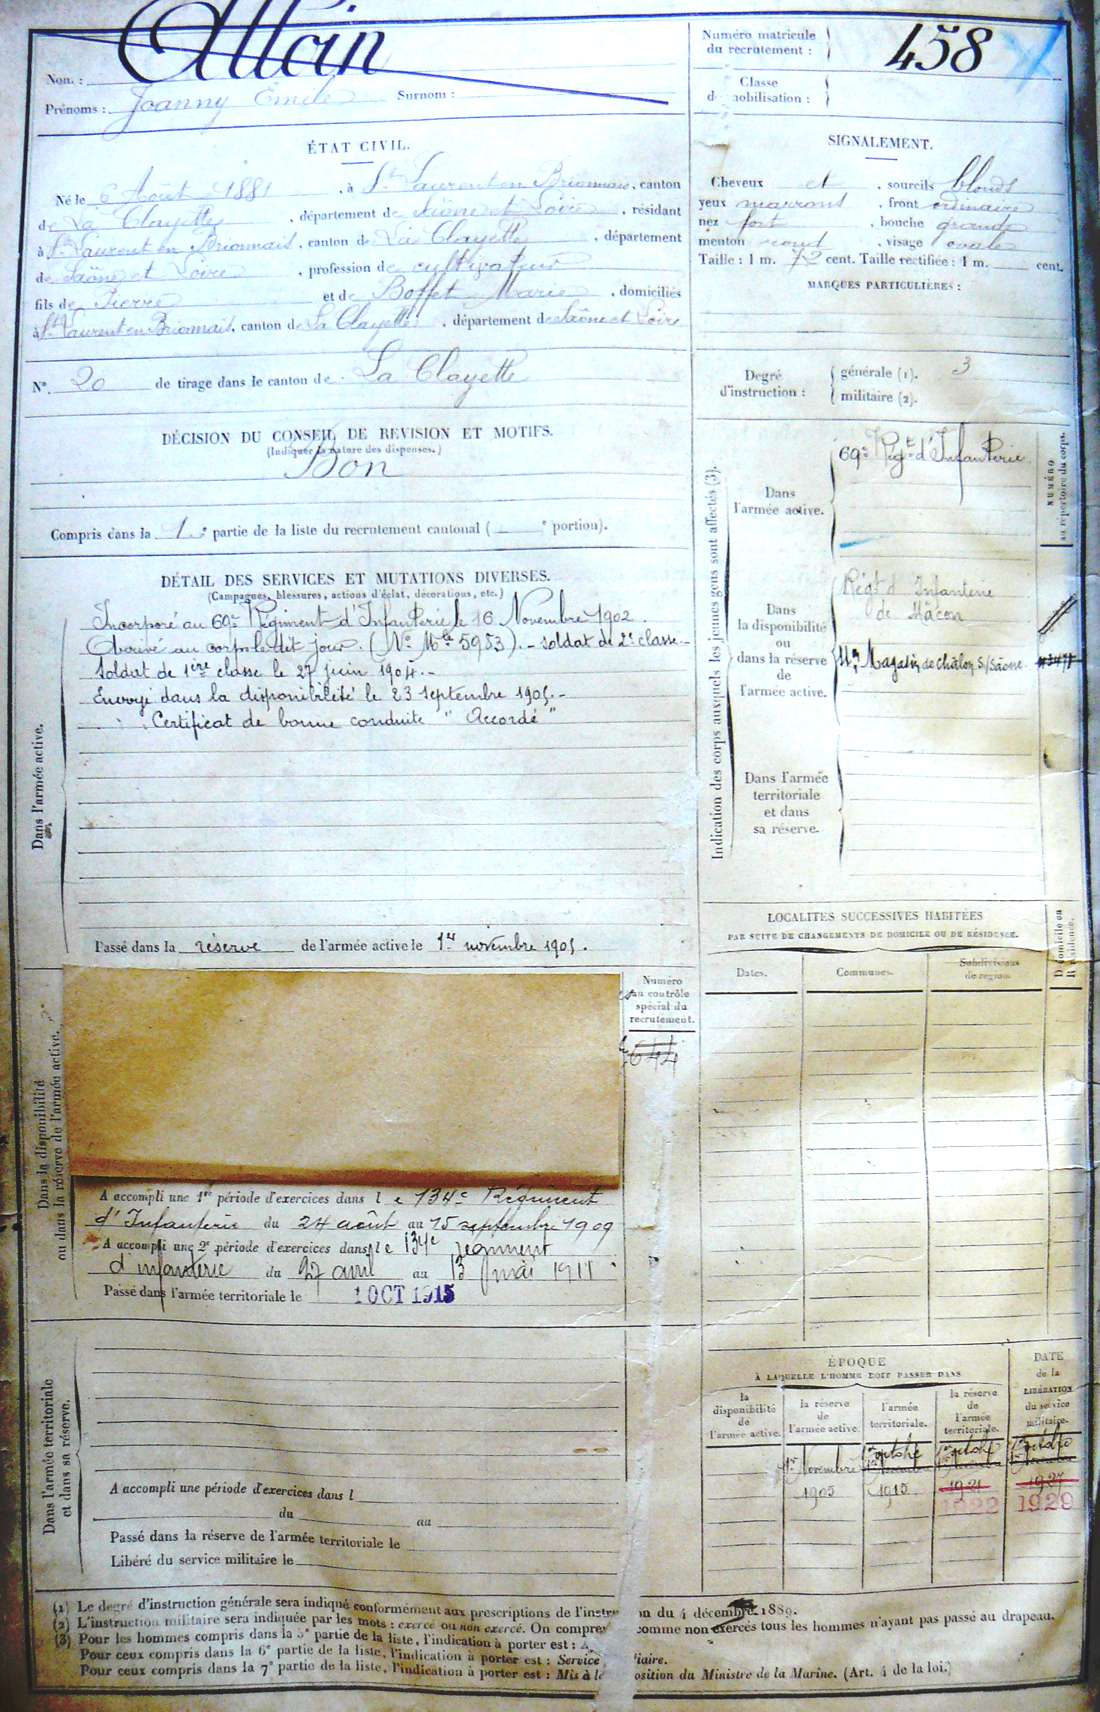 Nom :
Alloin
Prénoms : Joanny Emile Surnom :
Numéro matricule du recrutement : 458
Classe de mobilisation :
ÉTAT CIVIL.
Né le 6 Août 1881, à St Laurent en Brionnais, canton
de La Clayette, département de Saône et Loire, résidant
à St Laurent en Brionnais, canton de La Clayette, département
de Saône et Loire, profession de cultivateur
fils de Pierre et de Boffet Marie, domiciliés
à St Laurent en Brionnais, canton de La Clayette, département de Saône et Loire
N°. 20 de tirage dans le canton de La Clayette
DÉCISION DU CONSEIL DE REVISION ET MOTIFS.
(Indiquer la nature des dispenses.)
Bon
Compris dans la 1re partie de la liste du recrutement cantonal ( e portion).
SIGNALEMENT.
Cheveux et, sourcils blonds
yeux marrons, front ordinaire
nez fort, bouche grande
menton rond, visage ovale
Taille : 1 m. 72 cent. Taille rectifiée : 1 m. cent.
MARQUES PARTICULIÈRES :
Degré d'instruction :
générale (1). 3
militaire (2).
DÉTAIL DES SERVICES ET MUTATIONS DIVERSES.
(Campagnes, blessures, actions d'éclat, décorations, etc.)
Dans l'armée active.
Incorporé au 69e Régiment d'Infanterie le 16 Novembre 1902.
Arrivé au corps le dit jour. (No Mle 5953).- soldat de 2e classe.-
Soldat de 1ière classe le 27 juin 1904.-
Envoyé dans la disponibilité le 23 septembre 1905.-
Certificat de bonne conduite "Accordé"
Passé dans la réserve de l'armée active le 1er novembre 1905.
Indication des corps auxquels les jeunes gens sont affectés (3).
NUMÉRO au répertoire du corps.
Dans l'armée active.
69e Régt d'Infanterie
Dans la disponibilité ou dans la réserve de l'armée active.
Régt d'Infanterie
de Mâcon
Magasin de Châlon s/Saône
Dans l'armée territoriale et dans sa réserve.
LOCALITÉS SUCCESSIVES HABITÉES
PAR SUITE DE CHANGEMENTS DE DOMICILE OU DE RÉSIDENCE.
Dates.
Communes.
Subdivisions de région.
Domicile ou Résidence.
Dans la disponibilité
ou dans la réserve de l'armée active.
Numéro
au contrôle
spécial du
recrutement.
644
A accompli une 1re période d'exercices dans le 134e Régiment
d'Infanterie du 24 août au 15 septembre 1909
A accompli une 2e période d'exercices dans le 134e régiment
d'infanterie du 27 avril au 13 mai 1911
Passé dans l'armée territoriale le 1 OCT 1915
Dans l'armée territoriale
et dans sa réserve.
A accompli une période d'exercices dans l
du au
Passé dans la réserve de l'armée territoriale le
Libéré du service militaire le
ÉPOQUE
À LAQUELLE L'HOMME DOIT PASSER DANS
la disponibilité de l'armée active.
la réserve de l'armée active.
l'armée territoriale.
la réserve de l'armée territoriale.
DATE de la LIBÉRATION du service militaire.
1er Novembre 1er octobre 1er octobre 1er octobre
1905 1915 1921 1927
1922 1929
(1) Le degré d'instruction générale sera indiqué conformément aux prescriptions de l'instr on du 4 décembre 1889.
(2) L'instruction militaire sera indiquée par les mots : exercé ou non exercé. On compre comme non exercés tous les hommes n'ayant pas passé au drapeau.
(3) Pour les hommes compris dans la 5e partie de la liste, l'indication à porter est :
Pour ceux compris dans la 6e partie de la liste, l'indication à porter est : Service liaire.
Pour ceux compris dans la 7e partie de la liste, l'indication à porter est : Mis à la position du Ministre de la Marine. (Art. 4 de la loi.)